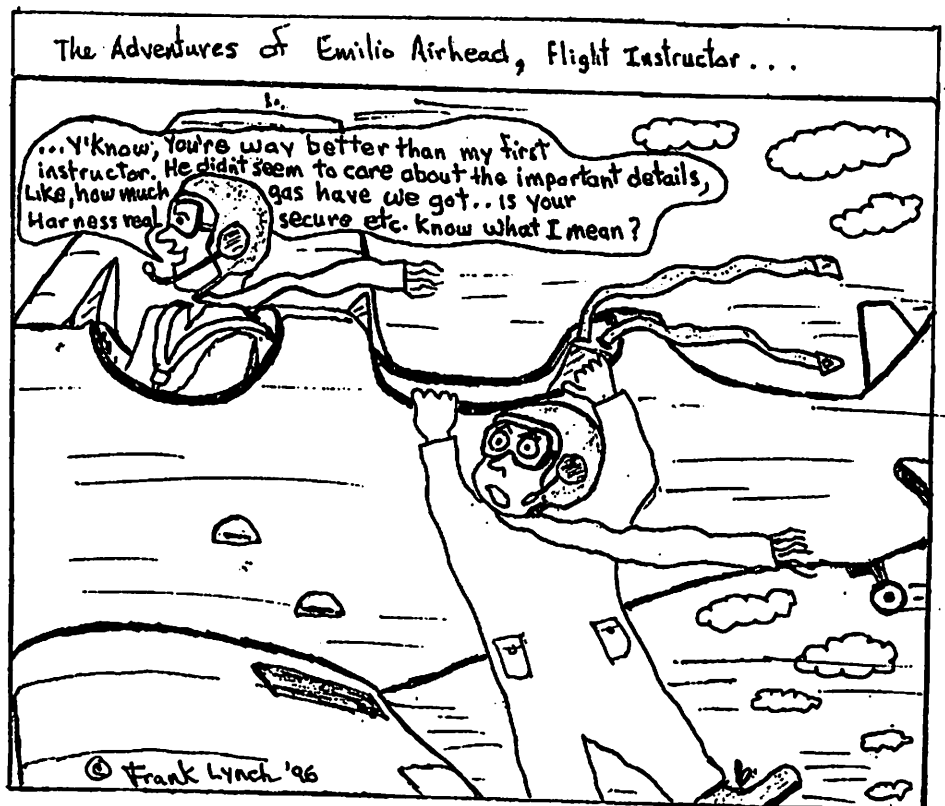 The Adventures of Emilio Airhead, Flight Instructor...
...Y'Know, You're way better than my first
instructor. He didn't seem to care about the important details,
Like, how much gas have we got.. is your
Harness real secure etc. Know what I mean?
© Frank Lynch '96